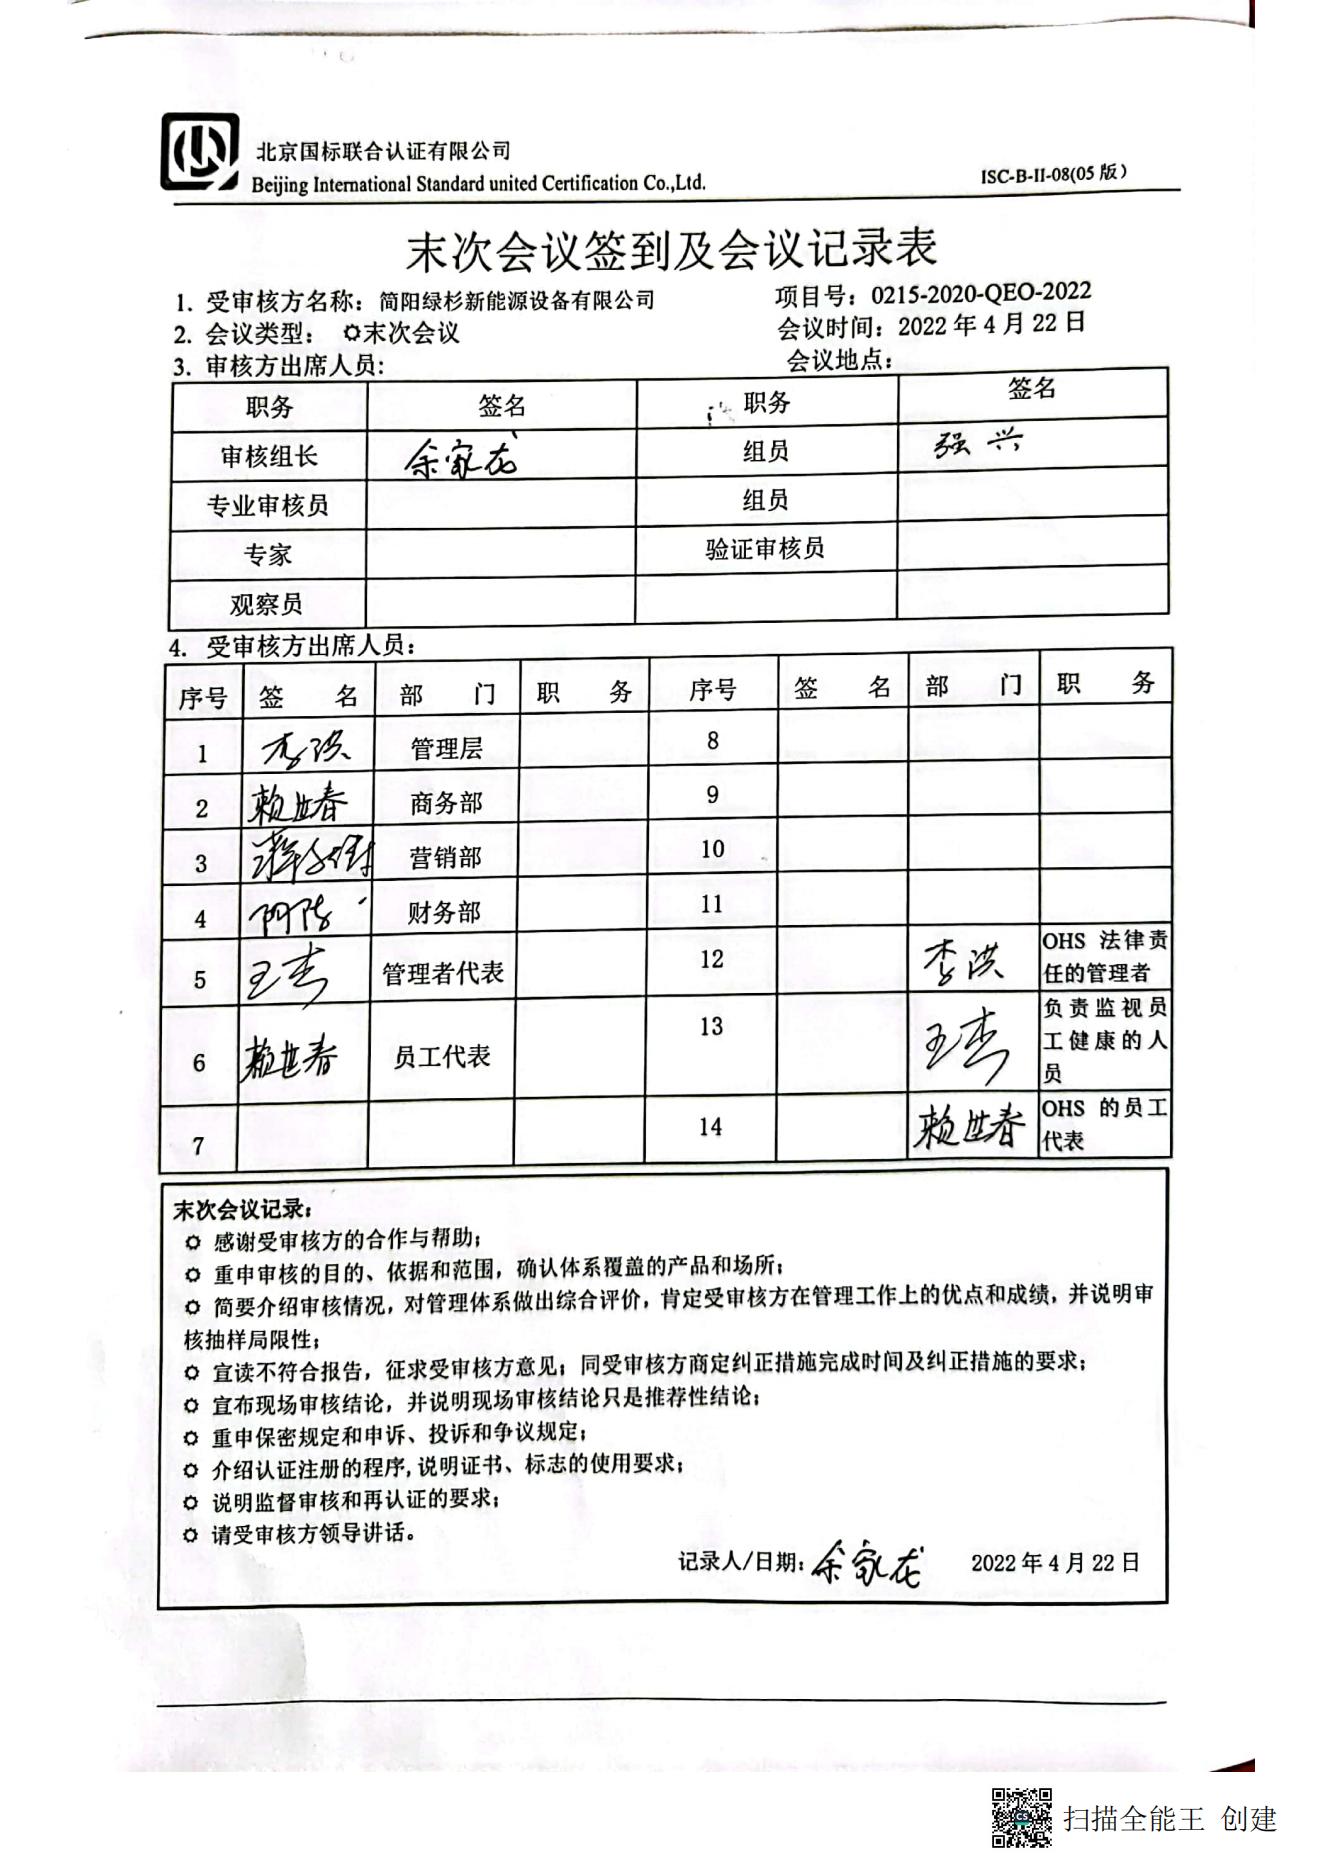 北京国标联合认证有限公司
Beijing International Standard united Certification Co.,Ltd.
ISC-B-II-08(05 版)
末次会议签到及会议记录表
1. 受审核方名称：简阳绿杉新能源设备有限公司 项目号：0215-2020-QEO-2022
2. 会议类型： 末次会议 会议时间：2022 年 4 月 22 日
3. 审核方出席人员: 会议地点：
职务 签名 职务 签名
审核组长 余家龙 组员 强兴
专业审核员 组员
专家 验证审核员
观察员
4. 受审核方出席人员：
序号 签 名 部 门 职 务 序号 签 名 部 门 职 务
1 李洪 管理层 8
2 赖世春 商务部 9
3 营销部 10
4 财务部 11
5 王杰 管理者代表 12 李洪 OHS 法律责
任的管理者
6 赖世春 员工代表 13 王杰 负责监视员
工健康的人
员
7 14 赖世春 OHS 的员工
代表
末次会议记录：
感谢受审核方的合作与帮助；
重申审核的目的、依据和范围，确认体系覆盖的产品和场所；
简要介绍审核情况，对管理体系做出综合评价，肯定受审核方在管理工作上的优点和成绩，并说明审
核抽样局限性；
宣读不符合报告，征求受审核方意见；同受审核方商定纠正措施完成时间及纠正措施的要求；
宣布现场审核结论，并说明现场审核结论只是推荐性结论；
重申保密规定和申诉、投诉和争议规定；
介绍认证注册的程序,说明证书、标志的使用要求；
说明监督审核和再认证的要求；
请受审核方领导讲话。
记录人/日期：余家龙 2022 年 4 月 22 日
扫描全能王 创建